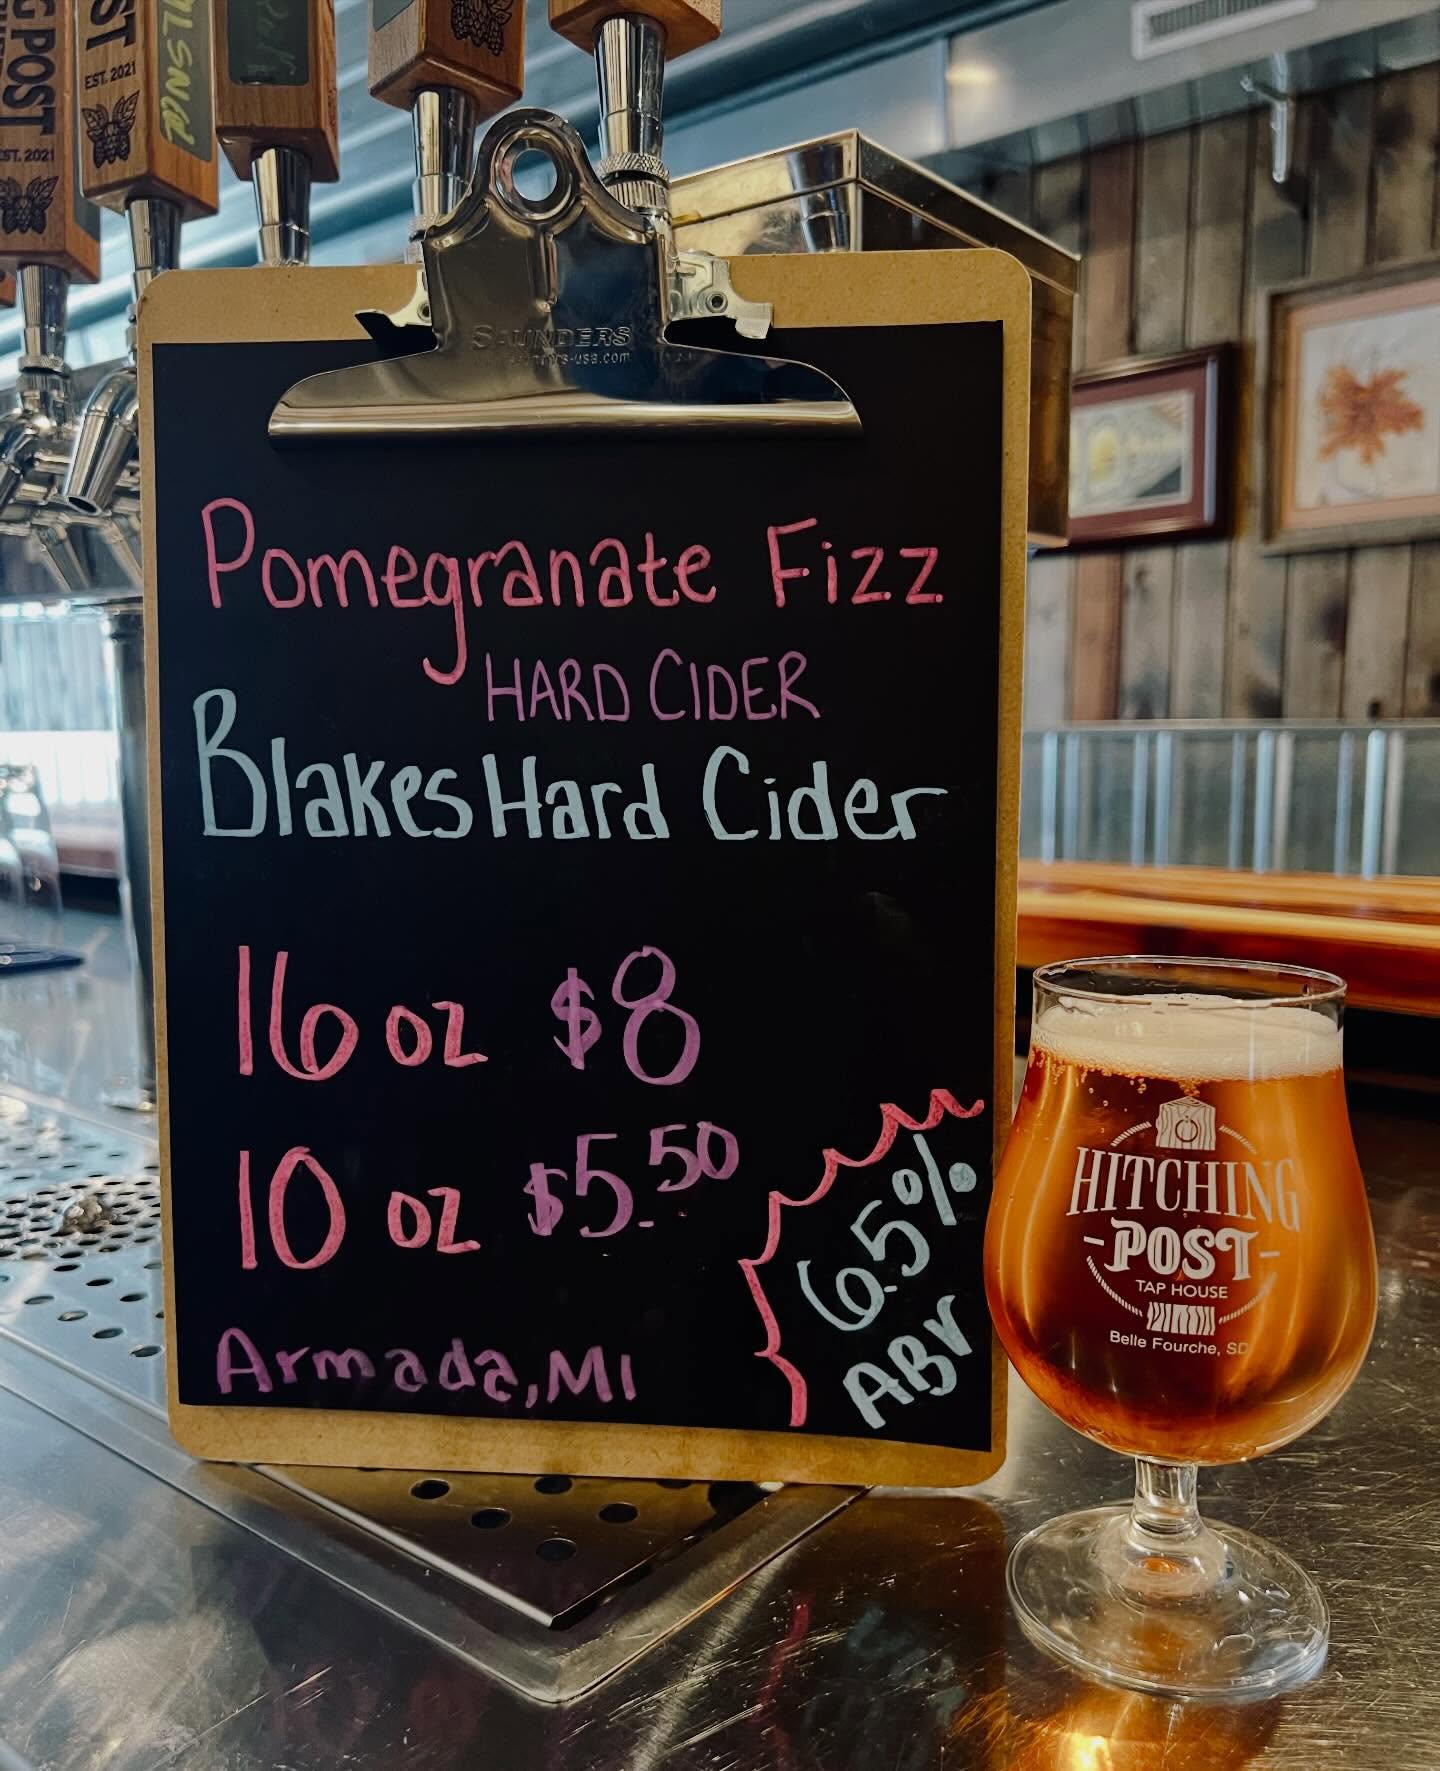 G POST
EST. 2021
ST
EST. 2021
PILSNER
SAUNDERS
Pomegranate Fizz
HARD CIDER
Blakes Hard Cider
16 oz $8
10 oz $5.50
6.5%
ABV
Armada, MI
HITCHING
-POST-
TAP HOUSE
Belle Fourche, SD